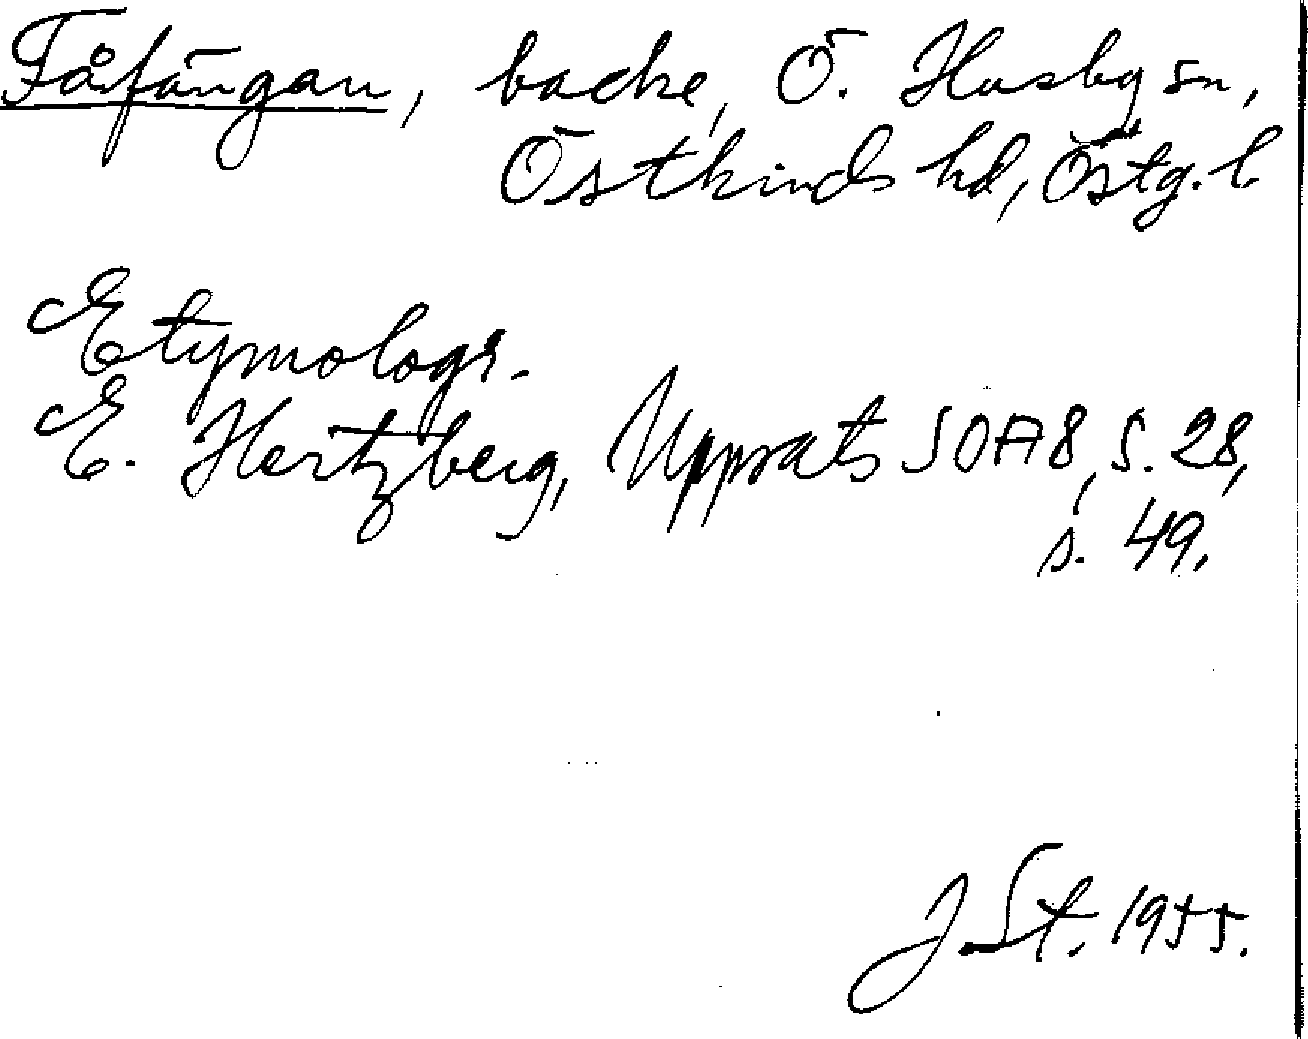 Fåfängan, backe, Ö. Husby sn,
Östkinds hd, Östg. l
Etymologi.
E. Hertzberg, Uppsats SOA 8, S. 28,
s. 49.
J. St. 1955.